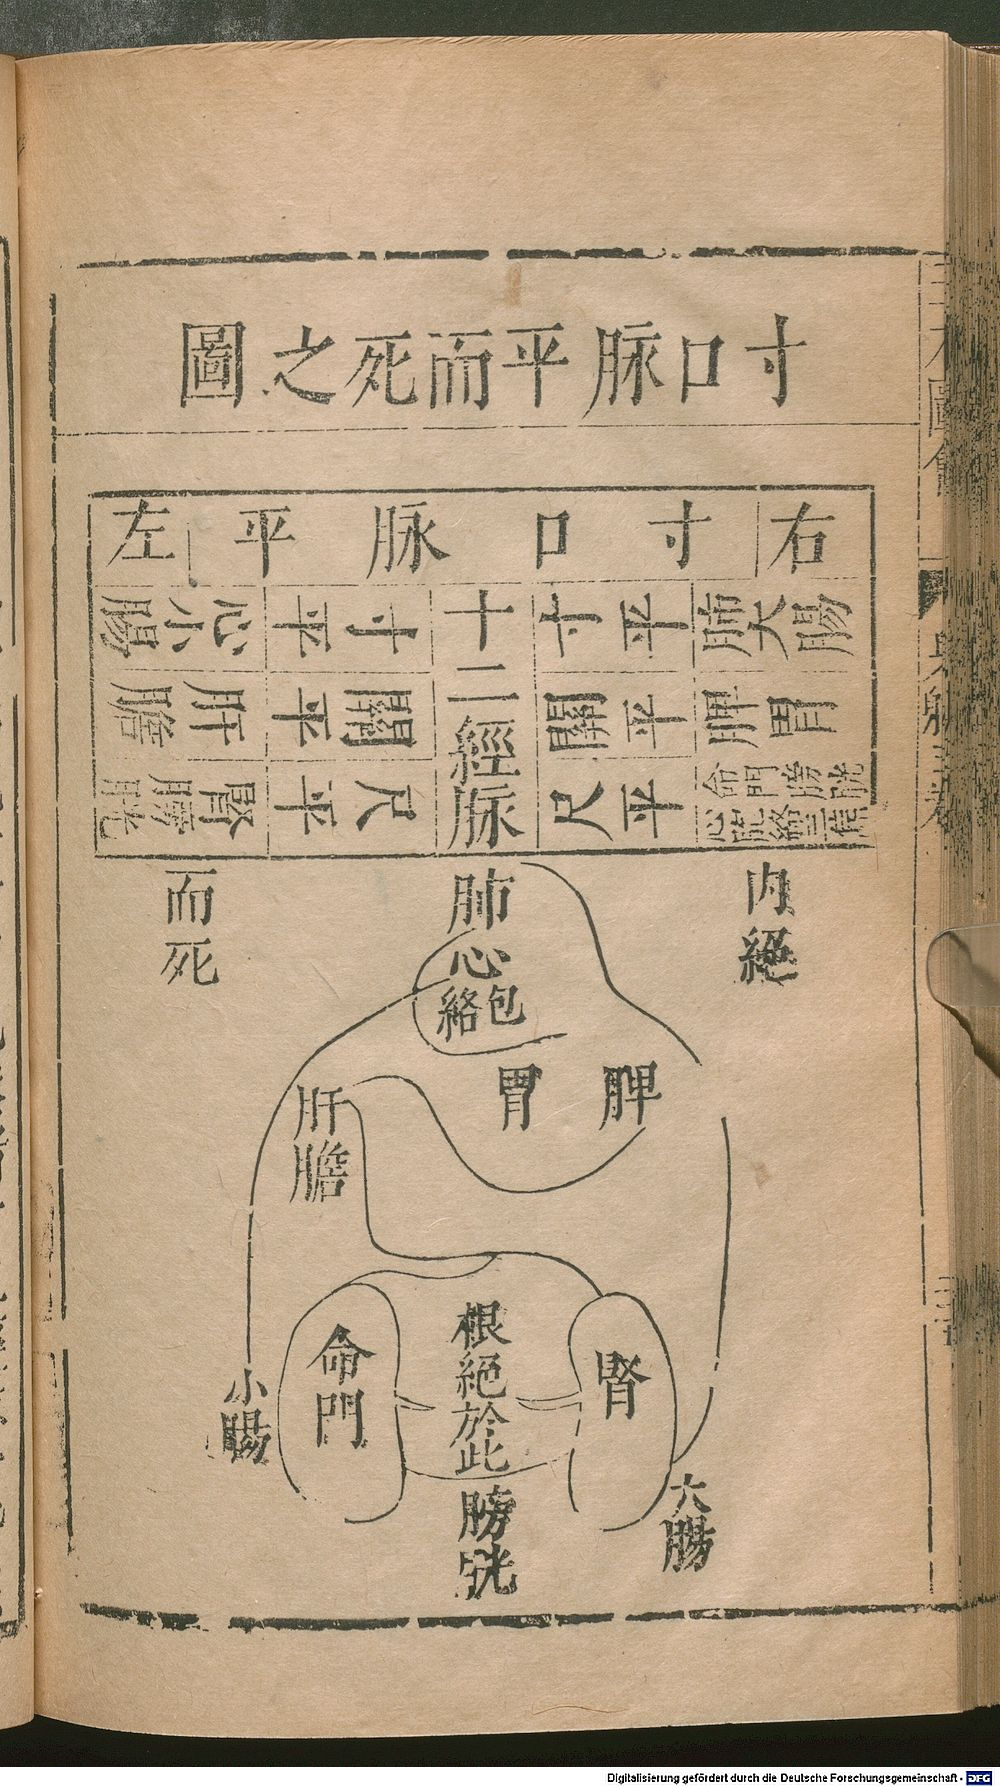 寸口脉平而死之圖
右 寸口脉平 左
大腸 肺 平 寸
胃 脾 平 關
膀胱 命門 三焦 心胞絡 平 尺
十二經脉
寸 平 心 小腸
關 平 肝 膽
尺 平 腎 膀胱
内絕
而死
肺
心
包絡
脾
胃
肝
膽
腎
命門
根絕於此
大腸
小腸
膀胱
三才圖會
身體三卷
Digitalisierung gefördert durch die Deutsche Forschungsgemeinschaft - DFG